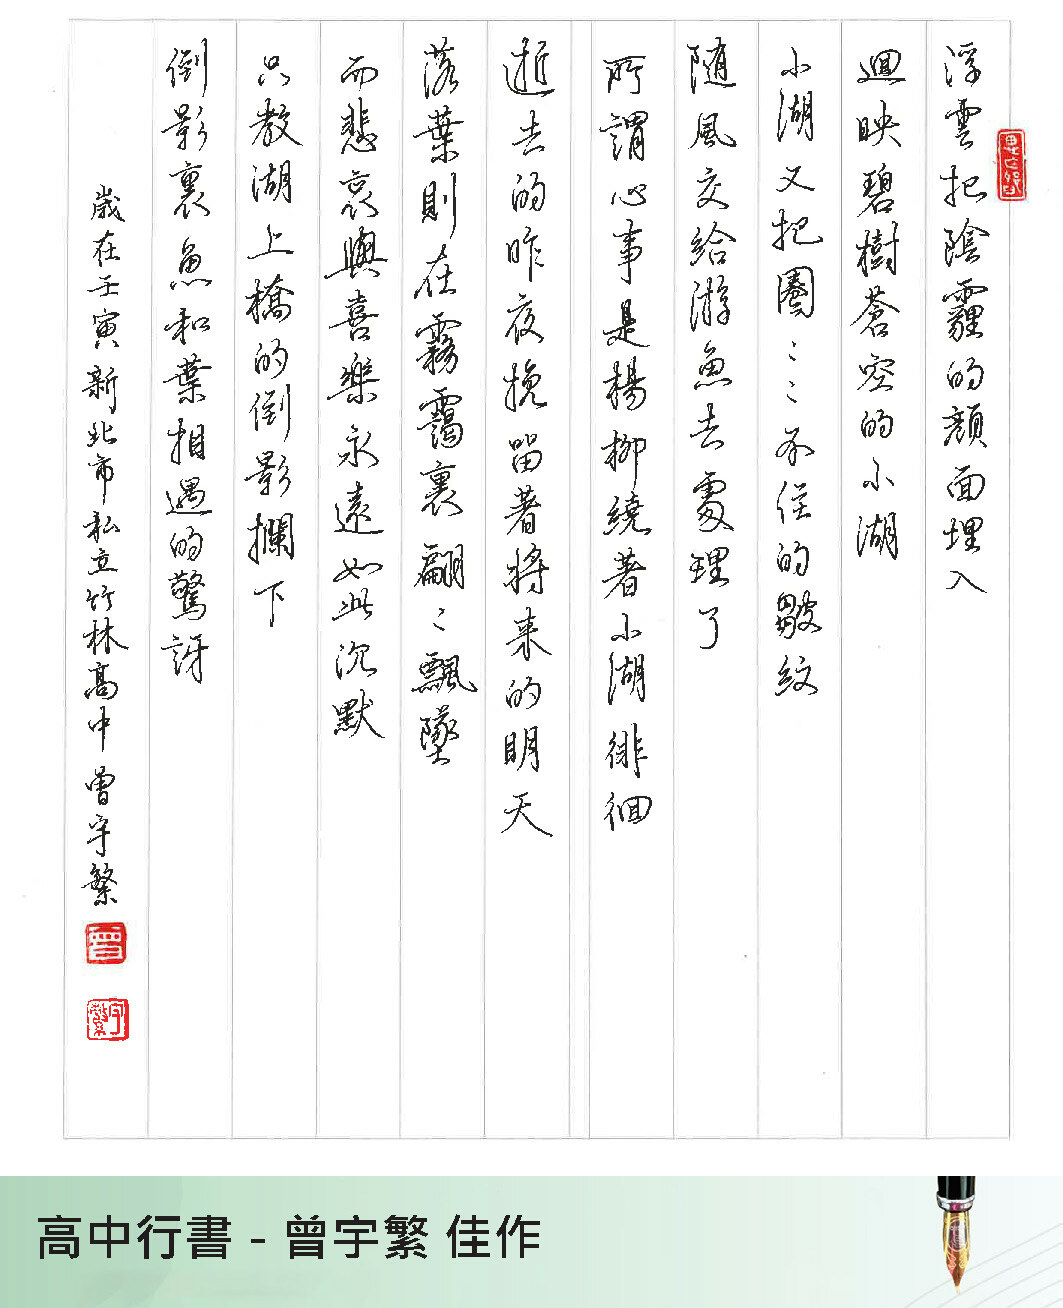 浮雲把陰霾的顏面埋入
迴映碧樹蒼空的小湖
小湖又把圈〻〻不住的皺紋
隨風交給游魚去處理了
所謂心事是楊柳繞著小湖徘徊
逝去的昨夜挽留著將來的明天
落葉則在霧靄裏翩〻飄墜
而悲哀與喜樂永遠如此沉默
只教湖上橋的倒影攔下
倒影裏魚和葉相遇的驚訝
歲在壬寅新北市私立竹林高中曾宇繁
曾
宇繁
高中行書 - 曾宇繁 佳作